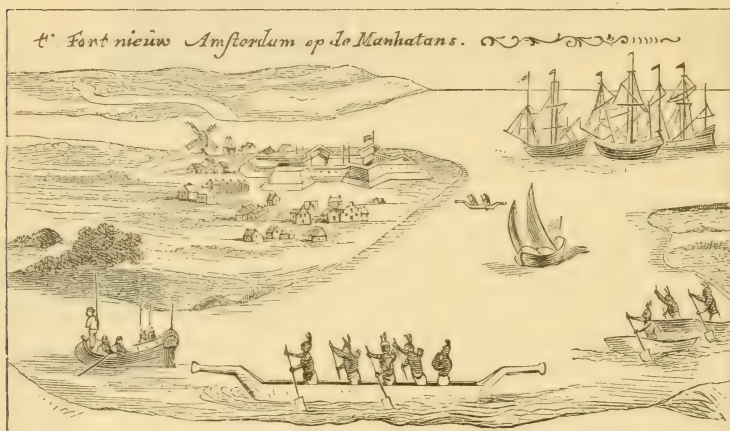 t' Fort nieüw Amsterdam op de Manhatans.